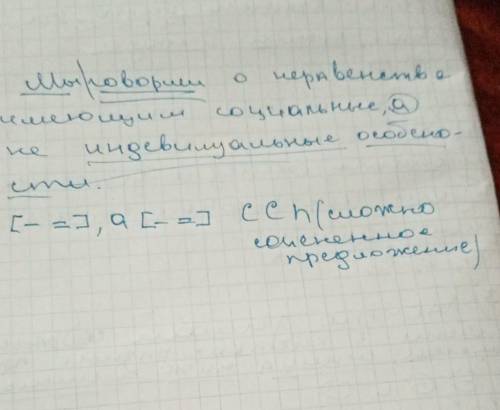 Мы говорим о неравенстве
имеющим социальные, а
не индевидуальные особено-
сти.
[- =], а [- =] ССП (сложно
сочененное
предложение)